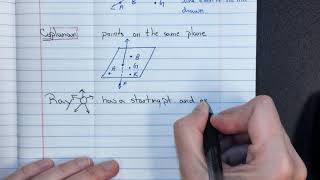 A G
drawn.
Coplanar points on the same plane
B
A
G
K
x
Ray has a starting pt and